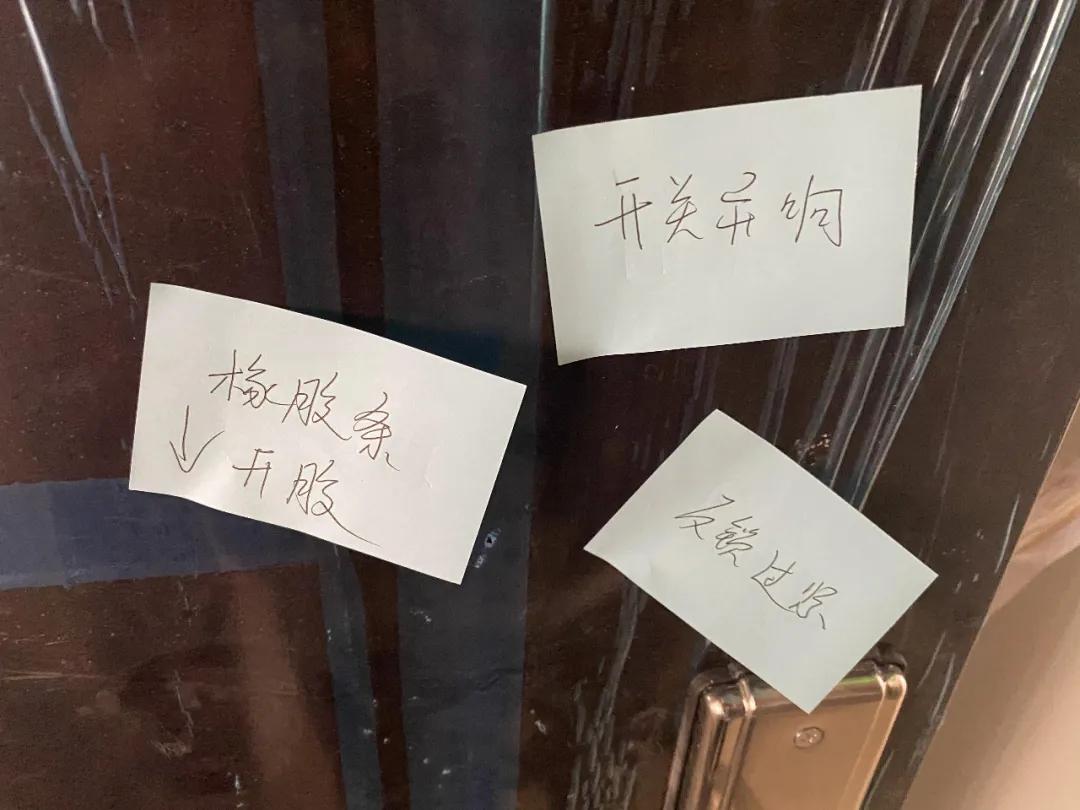 开关异响
橡胶条
↓ 开胶
反锁过紧